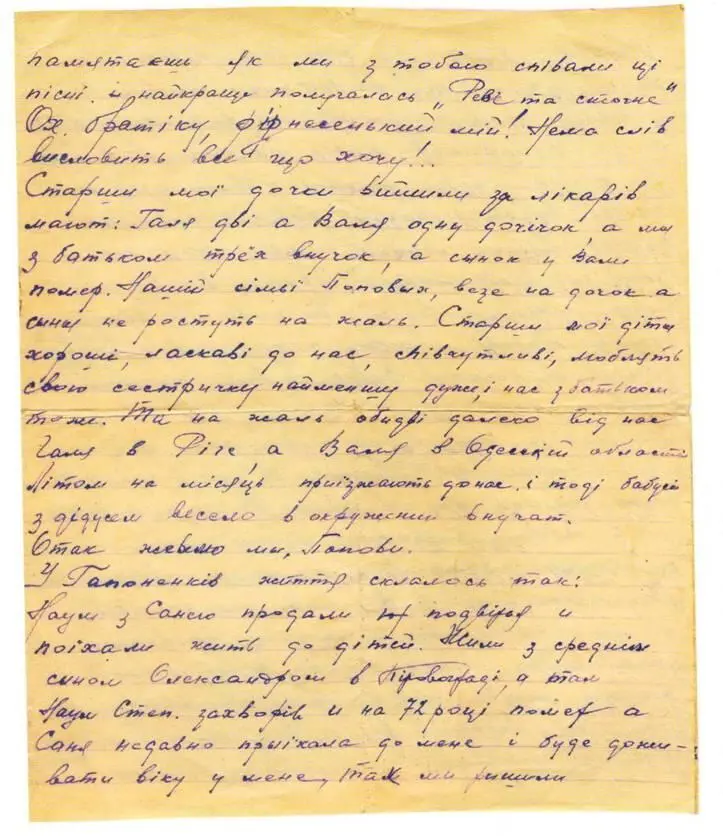 памятаєш як ми з тобою співали ці
пісні й найкраще получалась „Реве та стогне"
Ох, братіку, ріднесенький мій! Нема слів
висловить все що хочу!...
Старши мої дочки вийшли за лікарів
мают: Галя дві а Валя одну дочічок, а ми
з батьком трёх внучок, а сынок у Вали
помер. Нашій сімьі Поповых, везе на дочок а
сыни не ростуть на жаль. Старши мої діти
хороші, ласкаві до нас, співчутливі, люблять
свою сестричку найменшу дуже, і нас з батьком
тоже. Та на жаль обидві далеко від нас
Галя в Ризе, а Валя в Одесскій области
Літом на місяць приїзжають до нас. і тоді бабуся
з дідусем весело в окружении внучат.
Отак живьмо ми, Попови.
У Гапоненків життя склалось так:
Наум з Санею продали подвірья и
поїхали жить до дітей. Жили з среднім
сыном Олександром в Кіровограді, а там
Наум Степ. захворів и на 72 році помер а
Саня недавно приїхала до мене і буде дожи-
вати віку у мене, так ми ришили